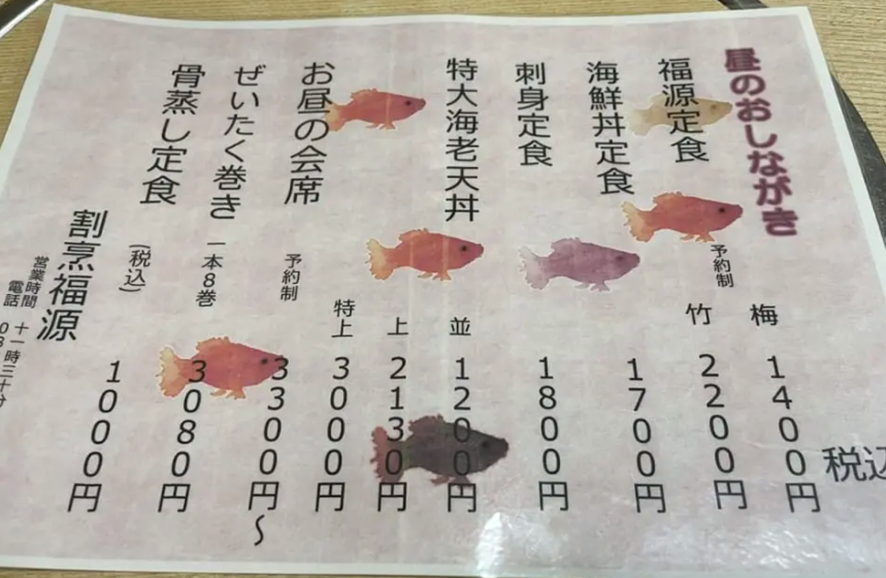 昼のおしながき
税込
福源定食 予約制 梅 1400円
竹 2200円
海鮮丼定食 1700円
刺身定食 1800円
特大海老天丼 並 1200円
上 2130円
特上 3000円
お昼の会席 予約制 3300円〜
ぜいたく巻き 一本8巻 3080円
骨蒸し定食 (税込) 1000円
割烹福源
営業時間 十一時三十分
電話 0